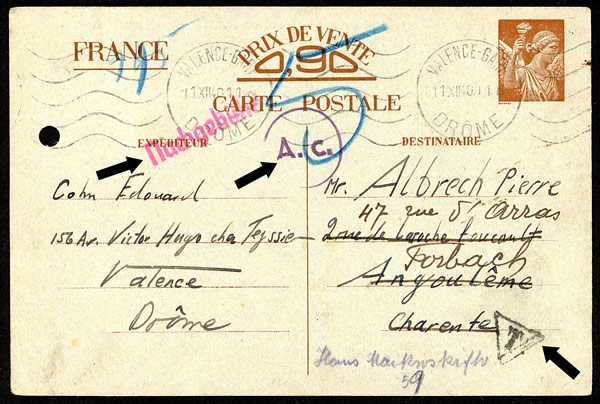 FRANCE
PRIX DE VENTE
0,90
CARTE POSTALE
VALENCE-GARE
11 XII 40
DRÔME
VALENCE-GA
11 XII 40
DRÔME
Nachgebühr
A.c.
EXPÉDITEUR
DESTINATAIRE
Cohn Edouard
156 Av. Victor Hugo chez Teyssie
Valence
Drôme
Mr. Albrech Pierre
47 rue d'Arras
2 rue de Laroche Foucault
Forbach
Angoulême
Charente
T
Hans
59